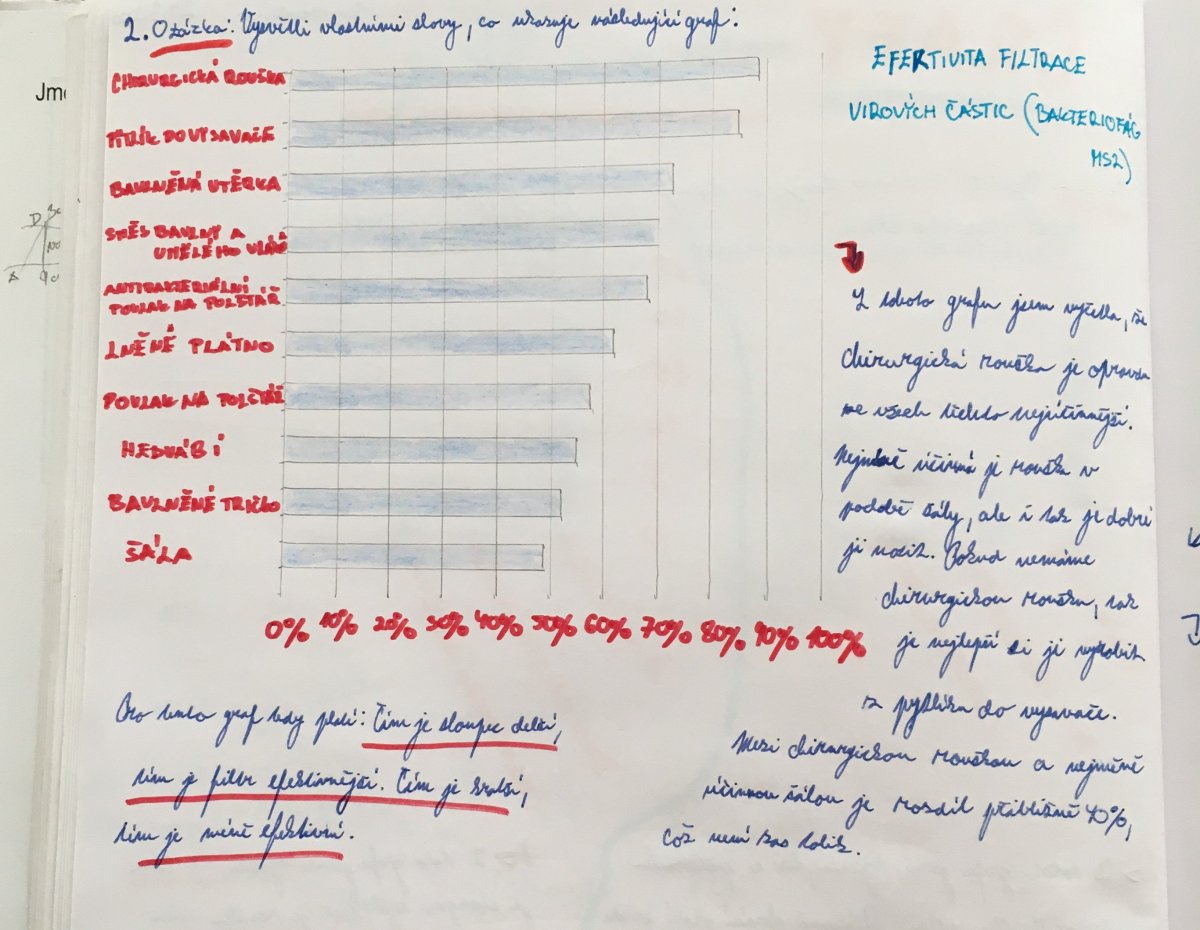 Jm
2. Otázka: Vysvětli vlastními slovy, co ukazuje následující graf:
EFEKTIVITA FILTRACE
VIROVÝCH ČÁSTIC (BAKTERIOFÁG
MS2)
CHIRURGICKÁ ROUŠKA
PYTLÍK DO VYSAVAČE
BAVLNĚNÁ UTĚRKA
SMĚS BAVLNY A
UMĚLÉHO VLÁ
ANTIBAKTERIÁLNÍ
POVLAK NA POLŠTÁŘ
LNĚNÉ PLÁTNO
POVLAK NA POLŠTÁŘ
HEDVÁBÍ
BAVLNĚNÉ TRIČKO
ŠÁLA
0% 10% 20% 30% 40% 50% 60% 70% 80% 90% 100%
Z tohoto grafu jsem vyčetla, že
chirurgická rouška je opravdu
ze všech těchto nejúčinnější.
Nejméně účinná je rouška v
podobě šály, ale i tak je dobré
ji nosit. Pokud nemáme
chirurgickou roušku, tak
je nejlepší si ji vyrobit
z pytlíku do vysavače.
Mezi chirurgickou rouškou a nejméně
účinnou šálou je rozdíl přibližně 40%,
což není zas tolik.
Pro tento graf tedy platí: Čím je sloupec delší,
tím je filtr efektivnější. Čím je kratší,
tím je méně efektivní.